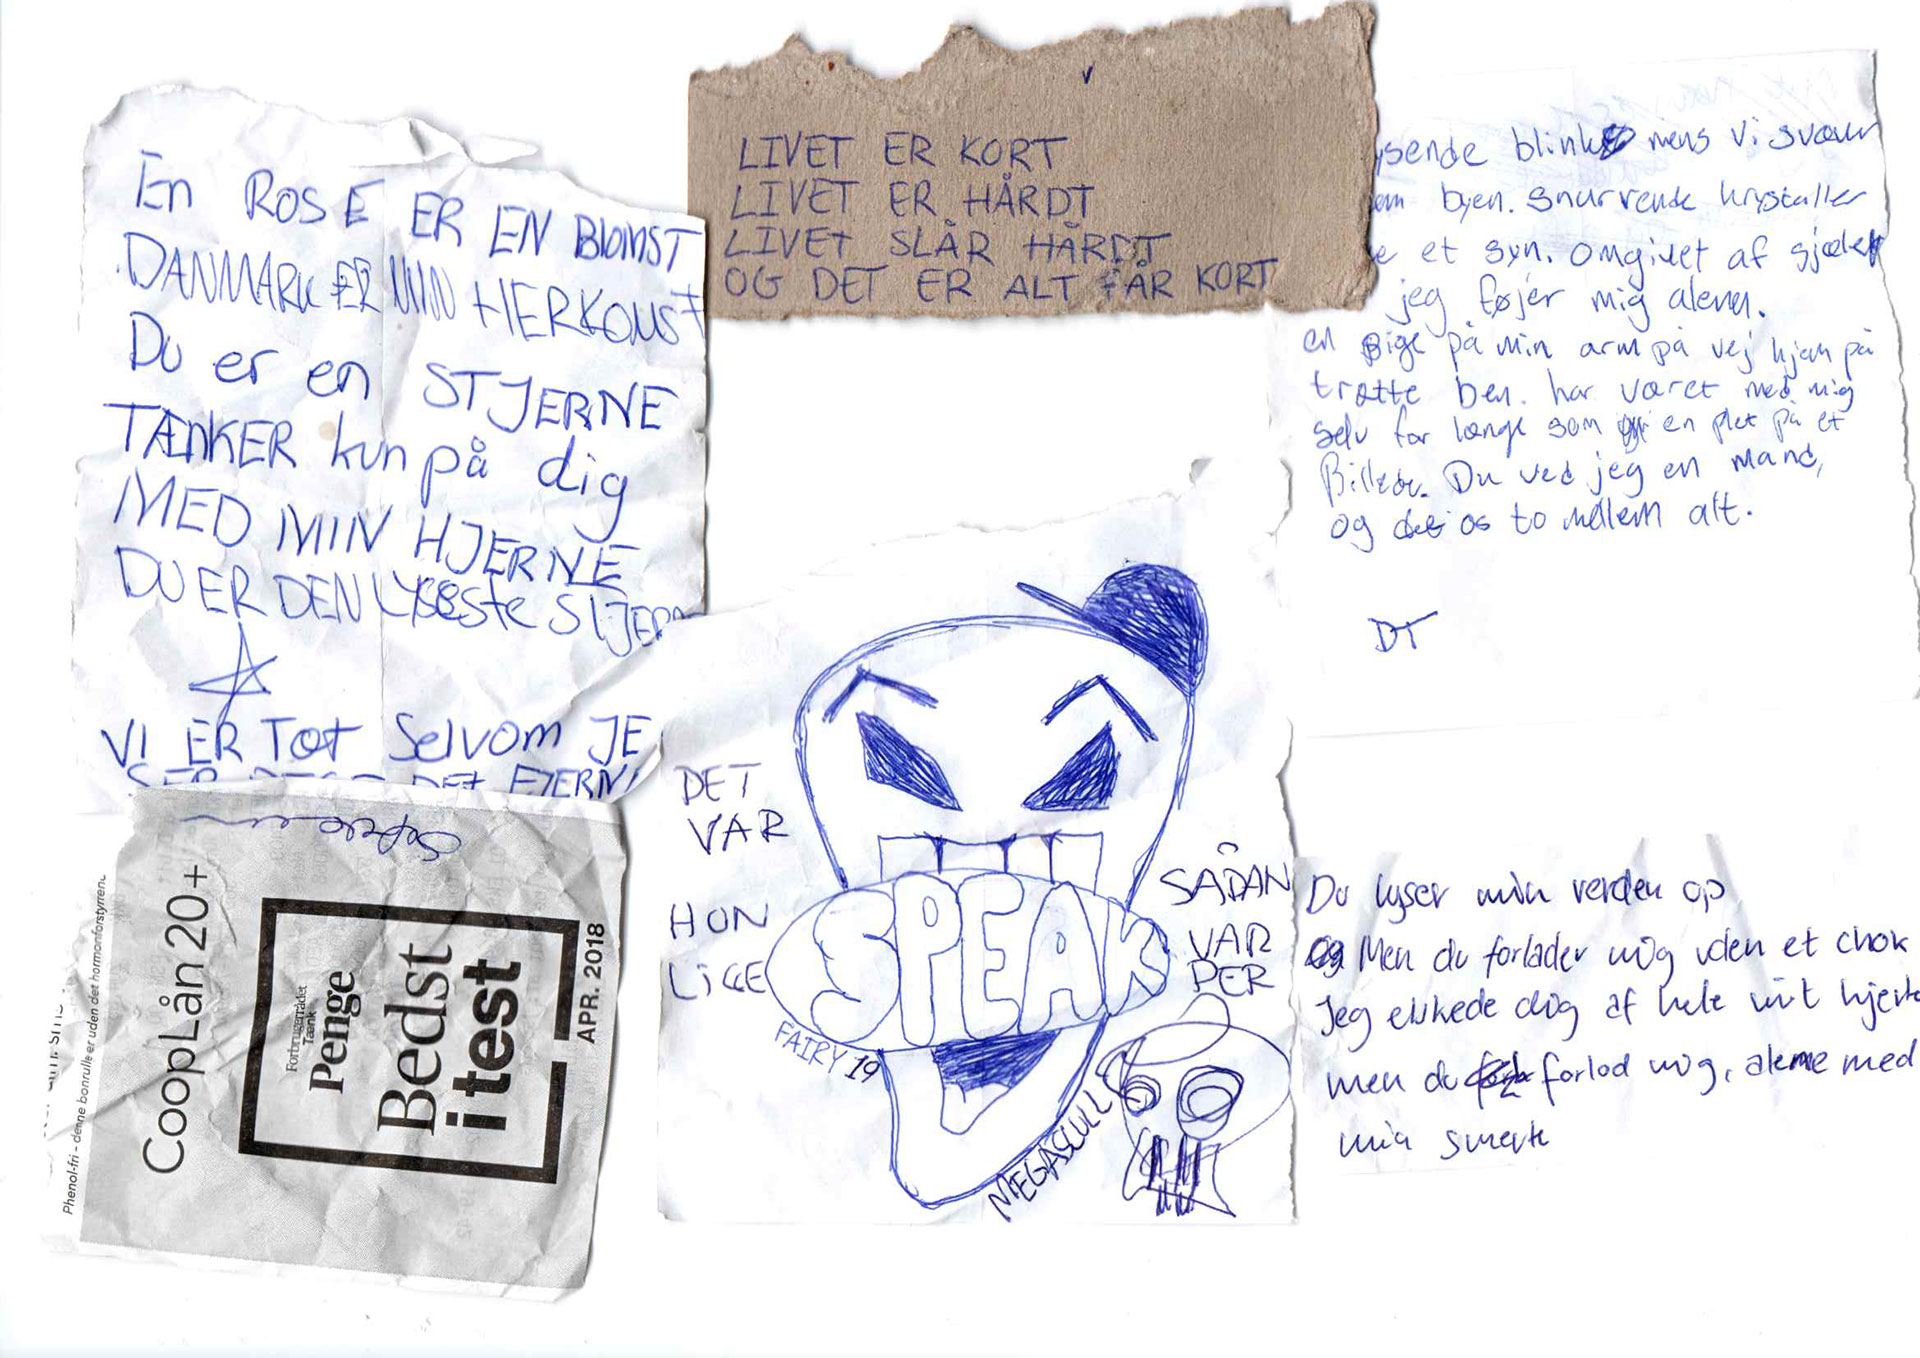 En ROSE ER EN BLOMST
DANMARK ER MIN HERKOMST
Du er en STJERNE
TÆNKER kun på dig
MED MIN HJERNE
DU ER DEN LYSESTE STJERN
VI ER Tæt Selvom JE
LIVET ER KORT
LIVET ER HÅRDT
LIVET SLÅR HÅRDT
OG DET ER ALT FÅR KORT
ysende blink mens vi svæver
em byen. snurrende krystaller
e et syn. omgivet af sjæle
jeg føjer mig alene.
en pige på min arm på vej hjem på
trætte ben. har været med mig
selv for længe som en plet på et
Billede. Du ved jeg en mand,
og det os to mellem alt.
DT
CoopLån 20+
Forbrugerrådet
Tænk
Penge
Bedst
i test
APR. 2018
Phenol-fri - denne bonrulle er uden det hormonforstyrrend
DET
VAR
HUN
LIGE
SPEAK
FAIRY 19
SÅDAN
VAR
PER
MEGASCULL
Du lyser min verden op
Men du forlader mig uden et chok
Jeg elskede dig af hele mit hjerte
men du forlod mig, alene med
min smerte